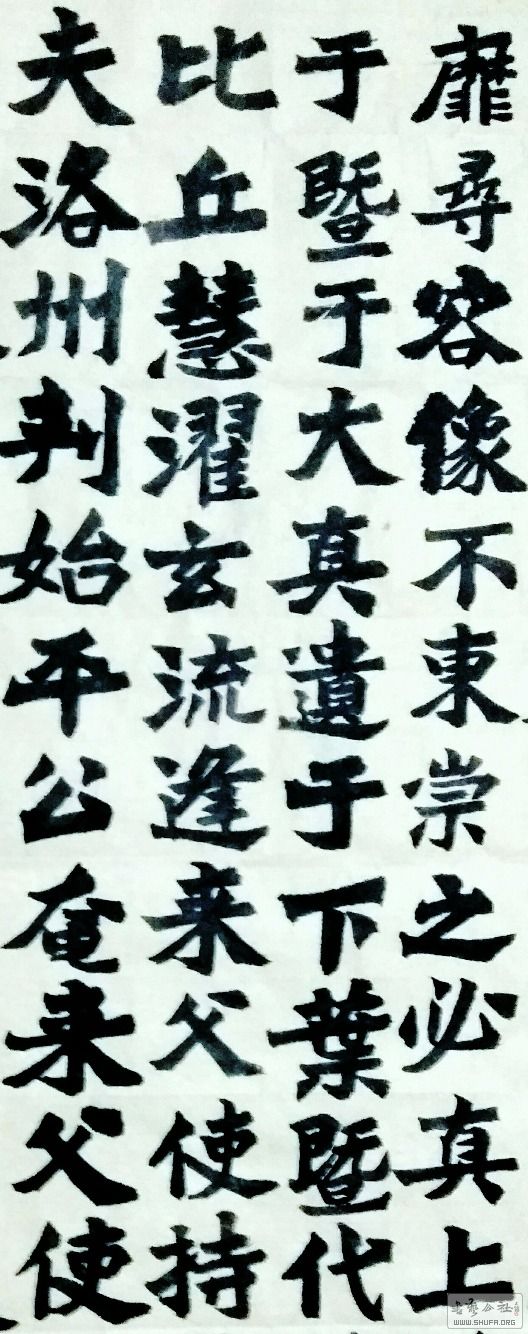 靡尋容像不東崇之必真上
于暨于大真遺于下葉暨代
比丘慧濯玄流逢来父使持
夫洛州刺始平公奄来父使
書藝公社
WWW.SHUFA.ORG